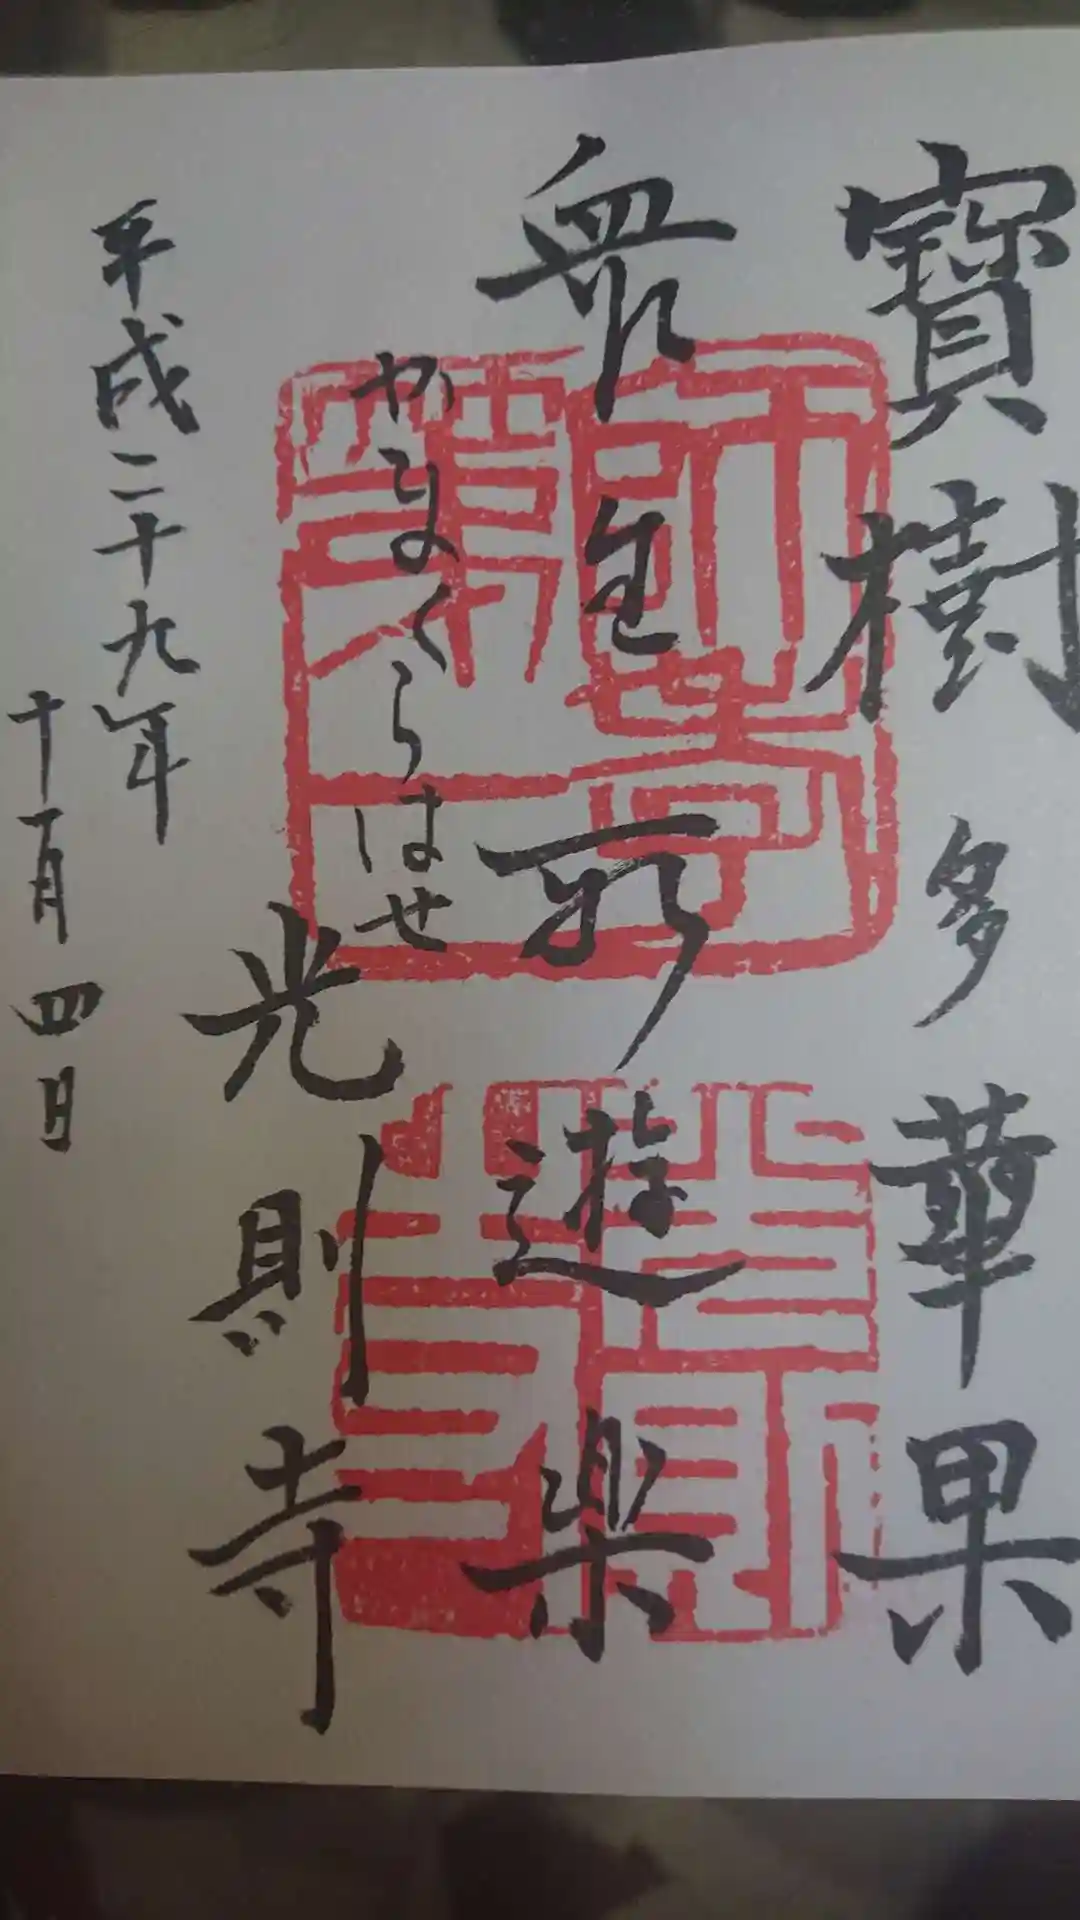 寶樹多華果
衆生所遊楽
かまくらはせ
光則寺
平成二十九年
十一月四日